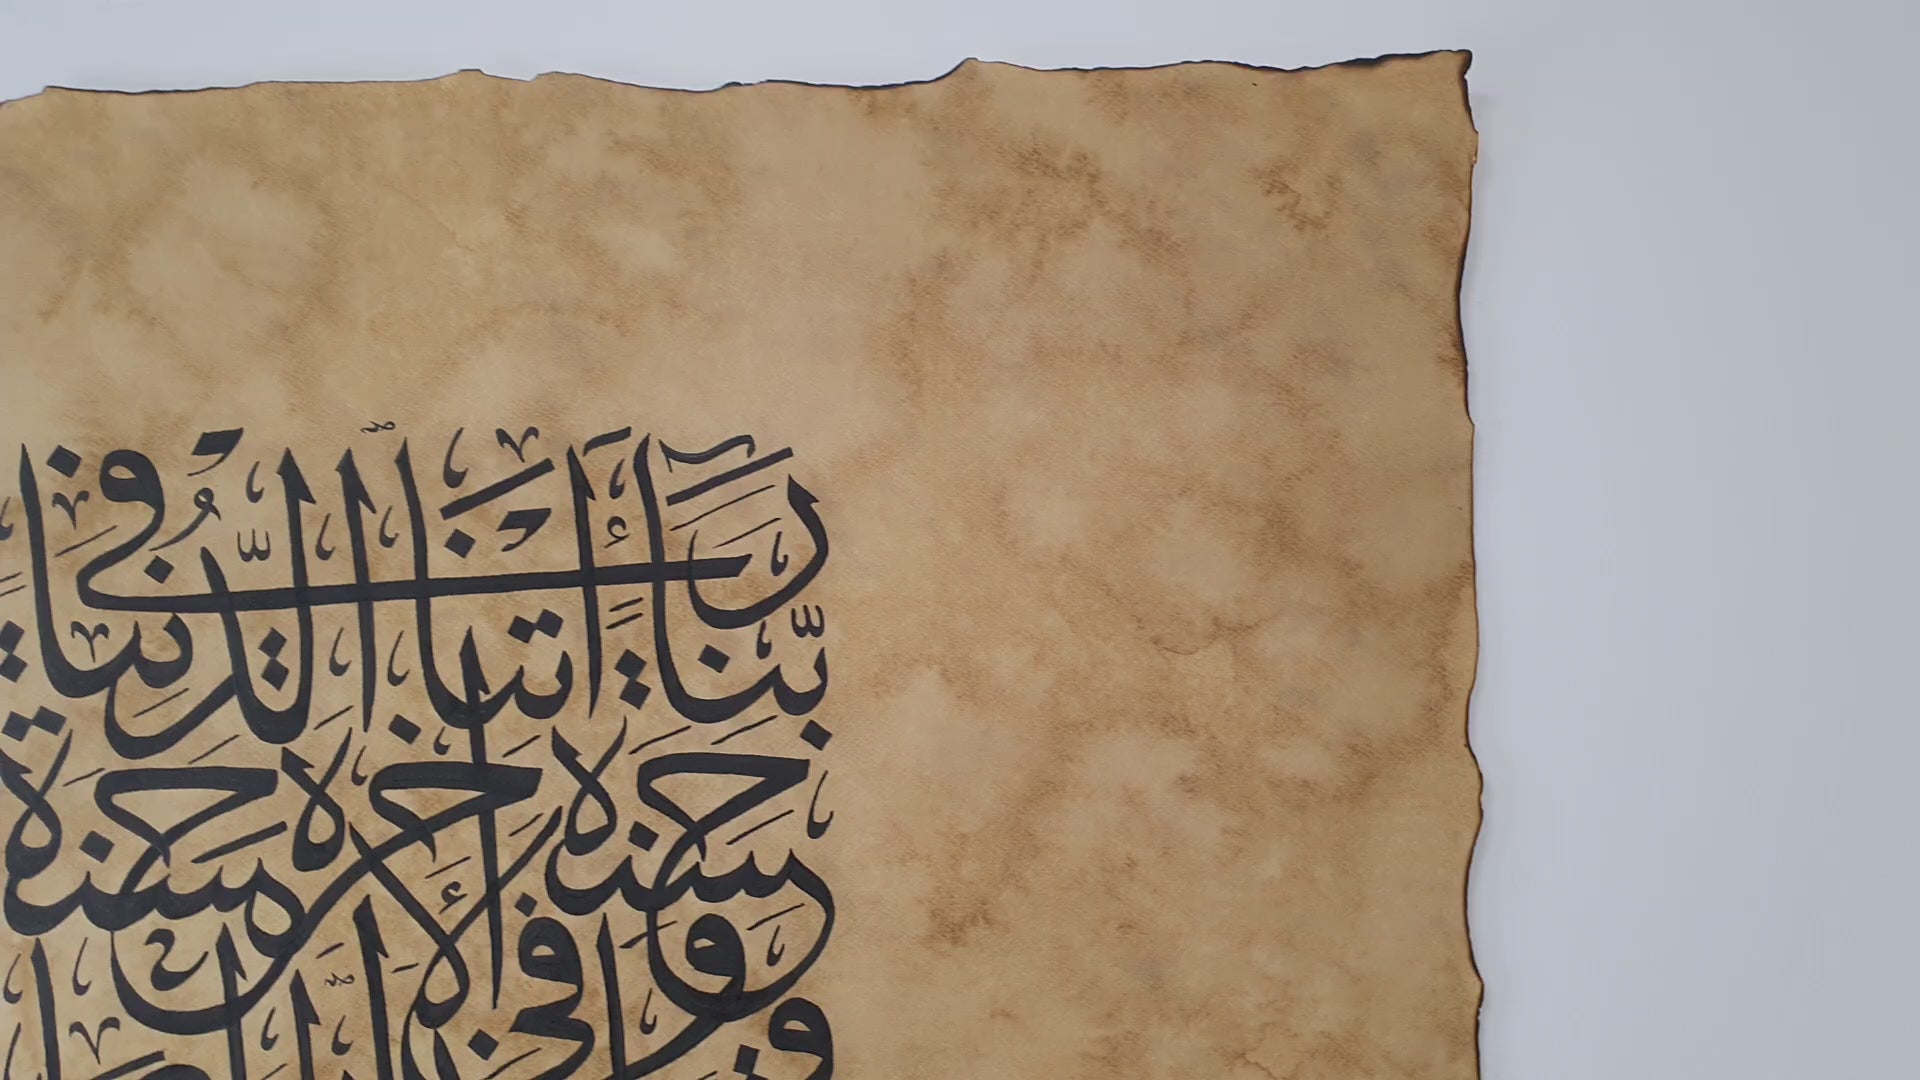 ربنا آتنا في الدنيا
حسنة وفي الآخرة حسنة